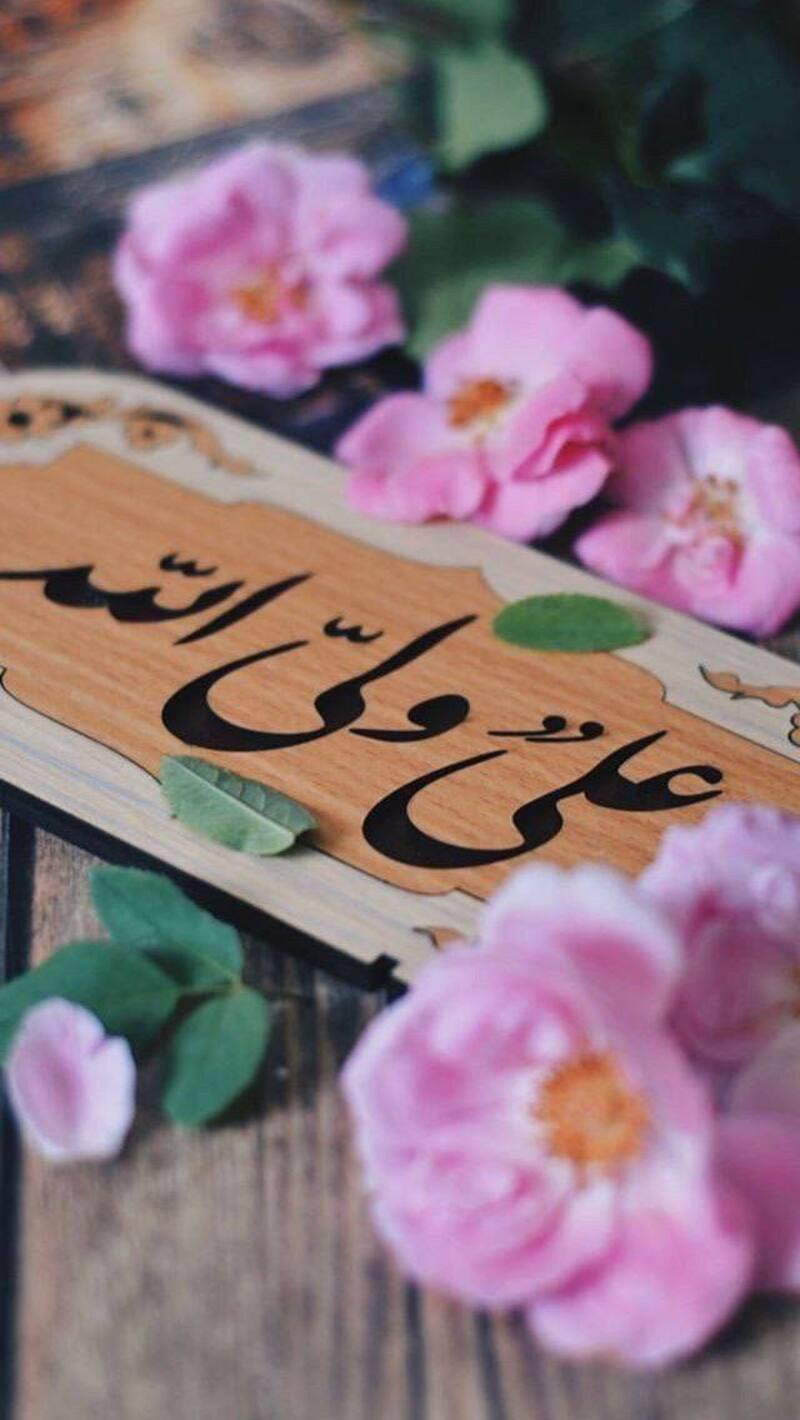 علىٌ ولىّ الله